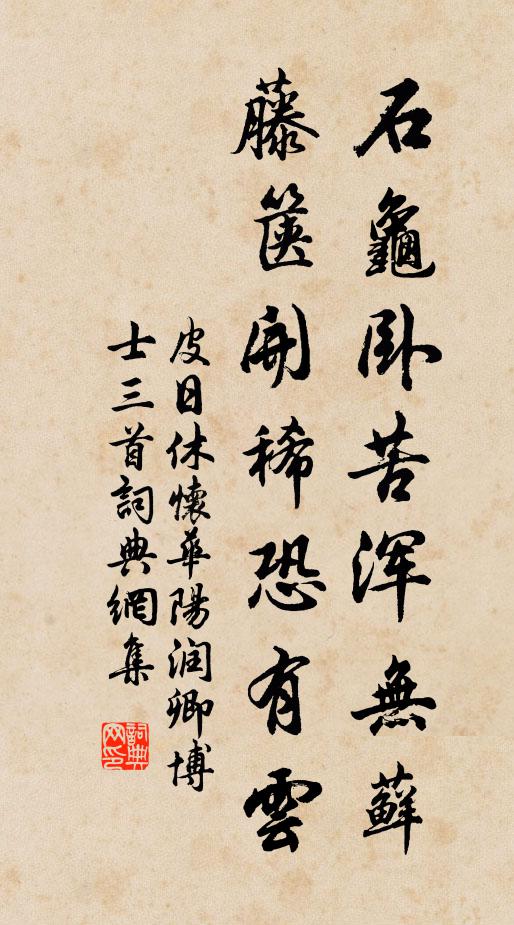 石龜卧苦渾無蘚
藤篋開稀恐有雲
皮日休懷華陽润卿博
士三首詞典網集
詞典网印